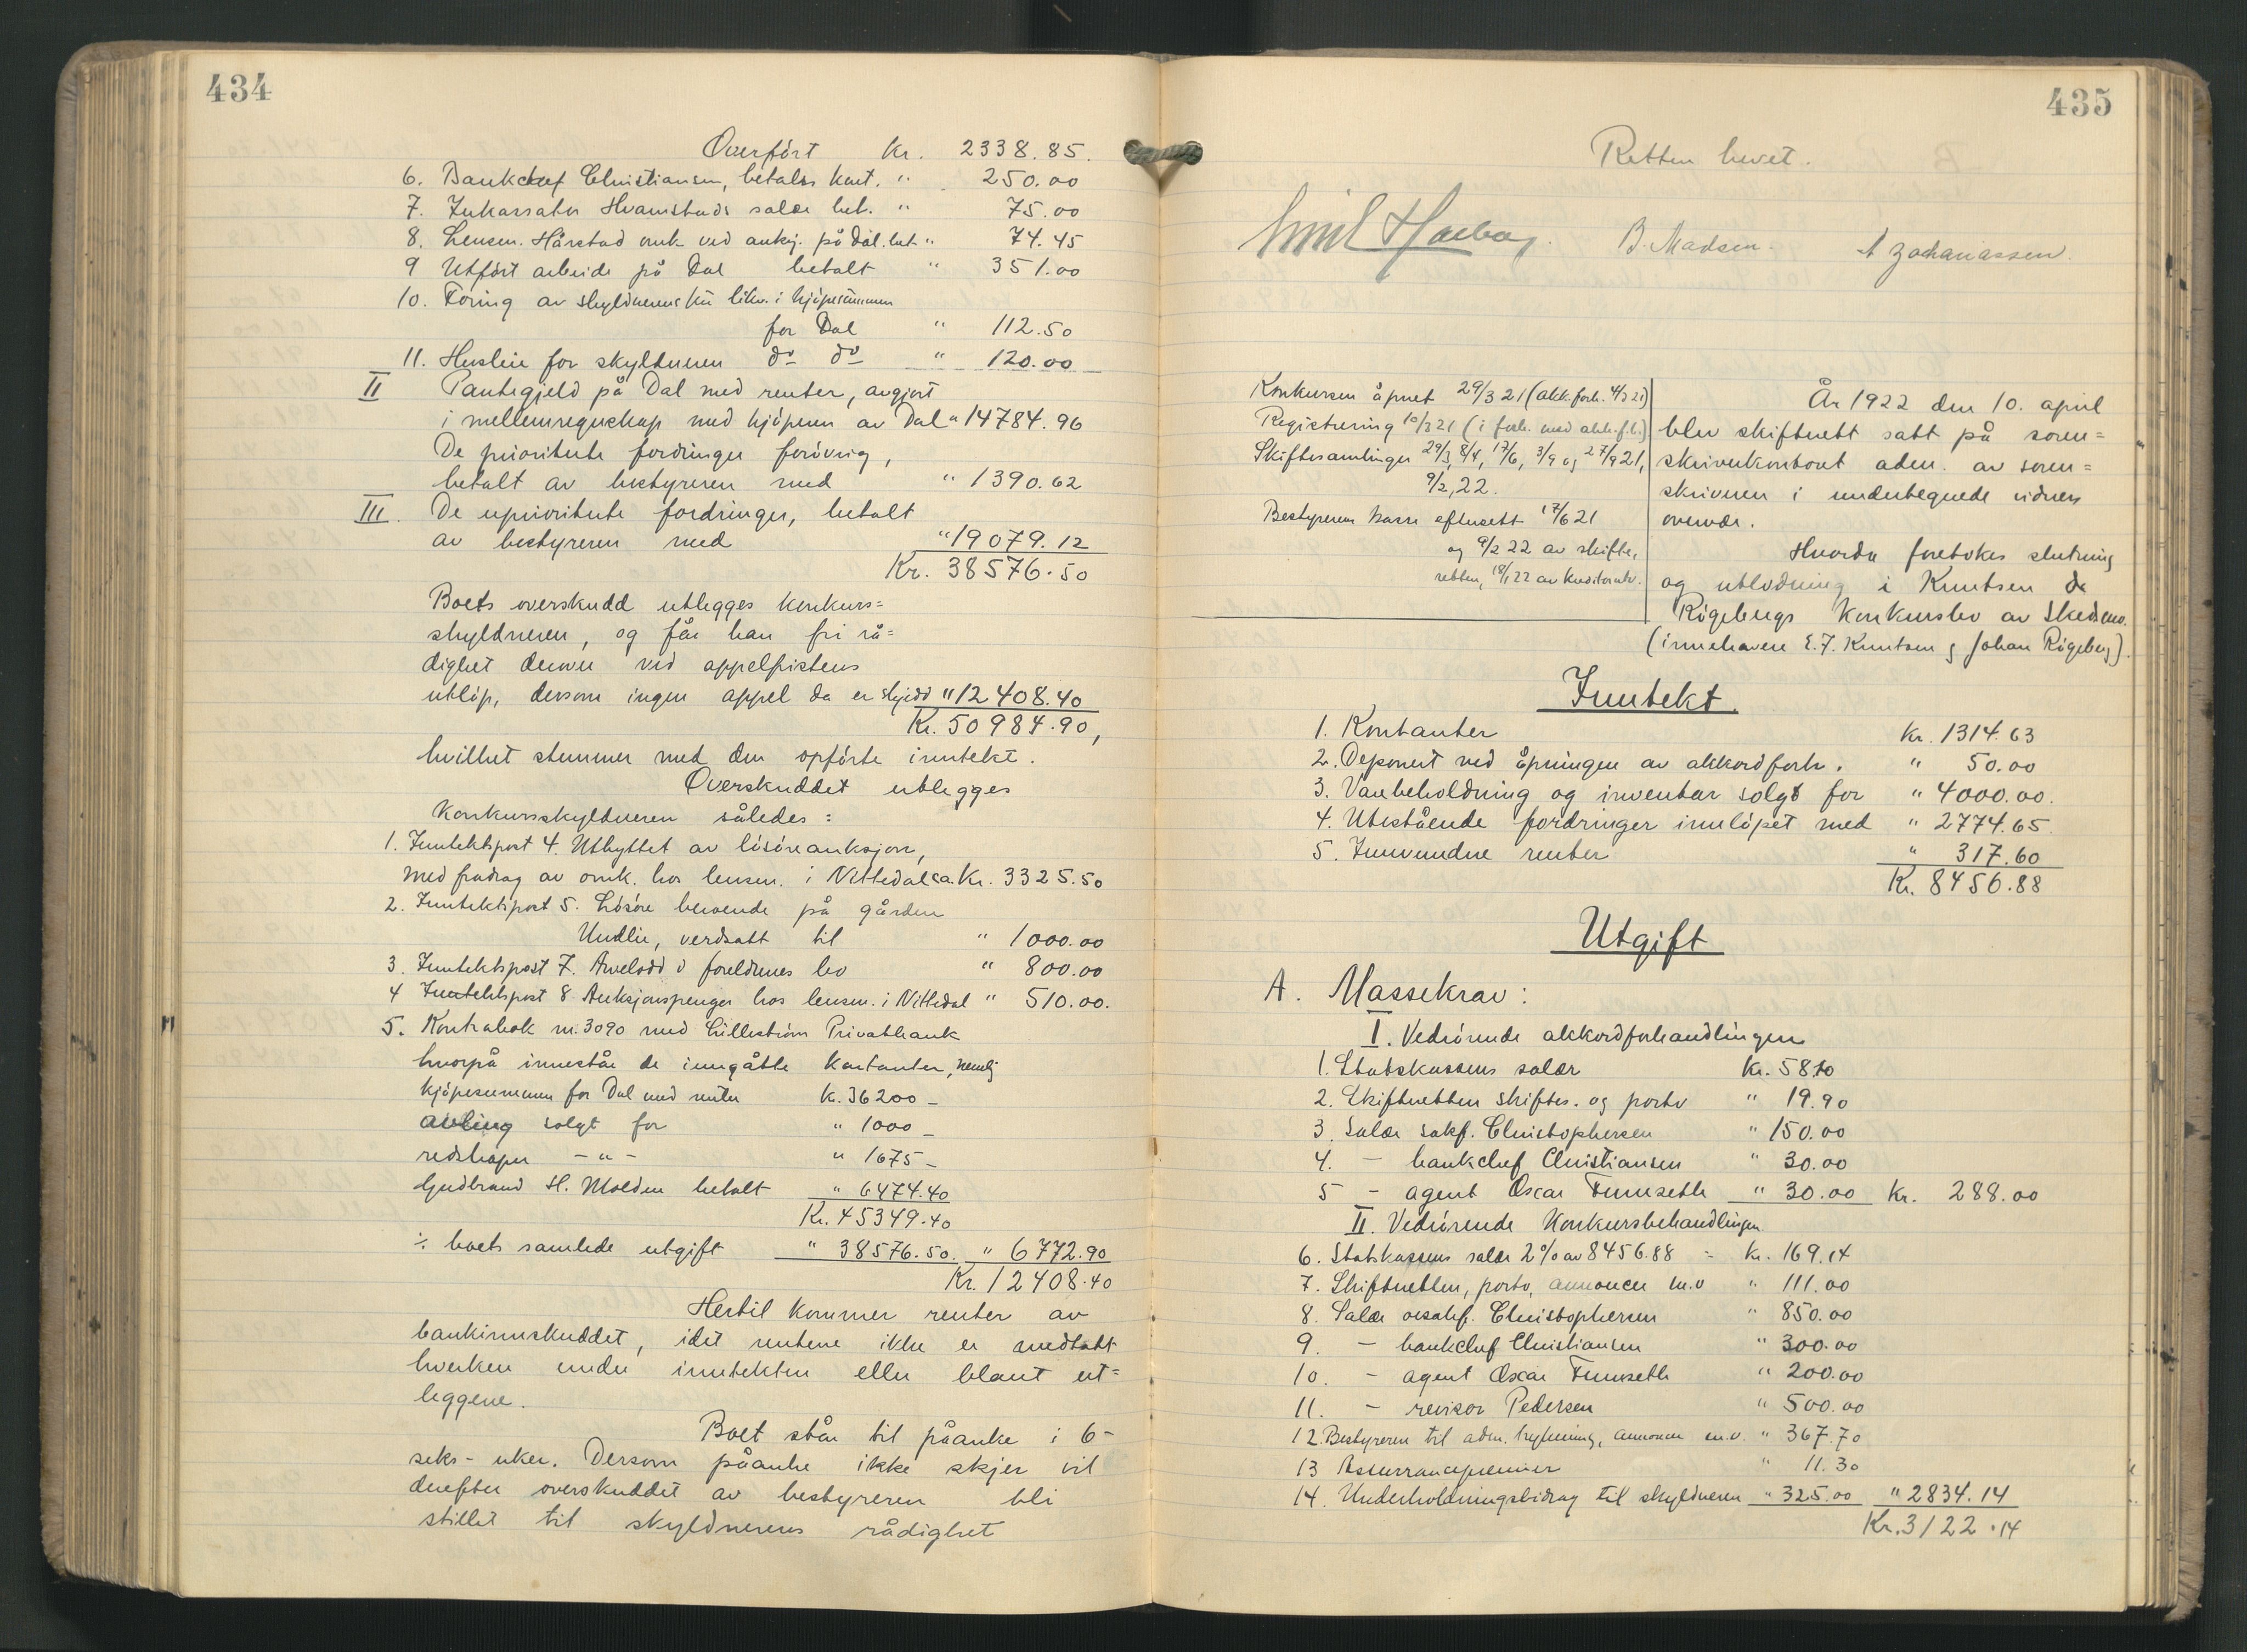 434
Overført Kr. 2338.85.
6. Bankchef Christiansen, betales kont. " 250.00
7. Inkassator Hvamstads salær bet. " 75.00
8. Lensm. Hårstad omk ved auksj. på Dal. bet " 74.45
9 Utført arbeide på Dal betalt " 351.00
10. Foring av skyldnerens ku likv. i kjøpesummen
for Dal " 112.50
11. Husleie for skyldneren do do " 120.00
II Pantegjeld på Dal med renter, avgjort
i mellemregnskap med kjøperen av Dal " 14784.96
De prioriterte fordringer forøvrig,
betalt av bestyreren med " 1390.62
III. De uprioriterte fordringer, betalt
av bestyreren med " 19079.12
Kr. 38576.50
Boets overskudd utlegges konkurs=
skyldneren, og får han fri rå=
dighet derover ved appelfristens
utløp, dersom ingen appel da er skjedd " 12408.40
Kr. 50984.90,
hvilket stemmer med den opførte inntekt.
Overskuddet utlegges
konkursskyldneren således:
1. Inntektspost 4. Utbyttet av løsøreauksjon,
med fradrag av omk. hos lensm. i Nittedal ca. Kr. 3325.50
2. Inntektspost 5. Løsøre beroende på gården
Undlie, verdsatt til " 1000.00
3. Inntektspost 7. Arvelodd i foreldrenes bo " 800.00
4 Inntektspost 8 Auksjonspenger hos lensm. i Nittedal " 510.00.
5. Kontrabok nr. 3090 med Lillestrøm Privatbank
hvorpå innestår de inngåtte kontanter, nemlig
kjøpesummen for Dal med renter K. 36200 –
avling solgt for " 1000 –
redskaper – " – " 1675 –
Gudbrand H. Molden betalt " 6474.40
Kr. 45349.40
÷ boets samlede utgift " 38576.50. " 6772.90
Kr. 12408.40
Hertil kommer renter av
bankinnskuddet, idet rentene ikke er medtatt
hverken under inntekten eller blant ut=
leggene.
Boet står til påanke i 6 –
seks – uker. Dersom påanke ikke skjer vil
derefter overskuddet av bestyreren bli
stillet til skyldnerens rådighet
435
Retten hevet.
Emil B. Madsen. A Zachariassen.
Konkursen åpnet 29/3 21 (akk.forh. 4/3 21)
Registrering 10/3 21 (i forb. med akk.fh.)
Skiftesamlinger 29/3, 8/4, 17/6, 3/9 og 27/9 21,
9/2, 22.
Bestyrerens kasse eftersett 17/6 21
og 9/2 22 av skifte,
retten, 18/1 22 av kreditorutv.
År 1922 den 10. april
blev skifterett satt på soren=
skriverkontoret adm. av soren=
skriveren i undertegnede vidners
overvær.
Hvorda foretokes slutning
og utlodning i Knutsen &
Rigebergs konkursbo av Skedsmo.
(innehavere E. F. Knutsen og Johan Rigeberg).
Inntekt.
1. Kontanter Kr. 1314.63
2. Deponert ved åpningen av akkordforh. " 50.00
3. Varebeholdning og inventar solgt for " 4000.00.
4. Utestående fordringer innløpet med " 2774.65
5. Innvundne renter " 317.60
Kr. 8456.88
Utgift
A. Massekrav:
I. Vedrørende akkordforhandlingen
1. Statskassens salær Kr. 58.10
2. Skifteretten skiftes. og porto " 19.90
3. Salær sakf. Christophersen " 150.00
4. – bankchef Christiansen " 30.00
5 – agent Oscar Funnseth " 30.00 Kr. 288.00
II. Vedrørende Konkursbehandlingen
6. Statskassens salær 2% av 8456.88 = Kr. 169.14
7. Skifteretten, porto, annoncer m.v " 111.00
8. Salær orsakf. Christophersen " 850.00
9. – bankchef Christiansen " 300.00
10. – agent Oscar Funnseth " 200.00
11. – revisor Pedersen " 500.00
12 Bestyreren til adm. annoncer m.v. " 367.70
13 Assurancepremier " 11.30
14. Underholdningsbidrag til skyldneren " 325.00 " 2834.14
Kr. 3122.14